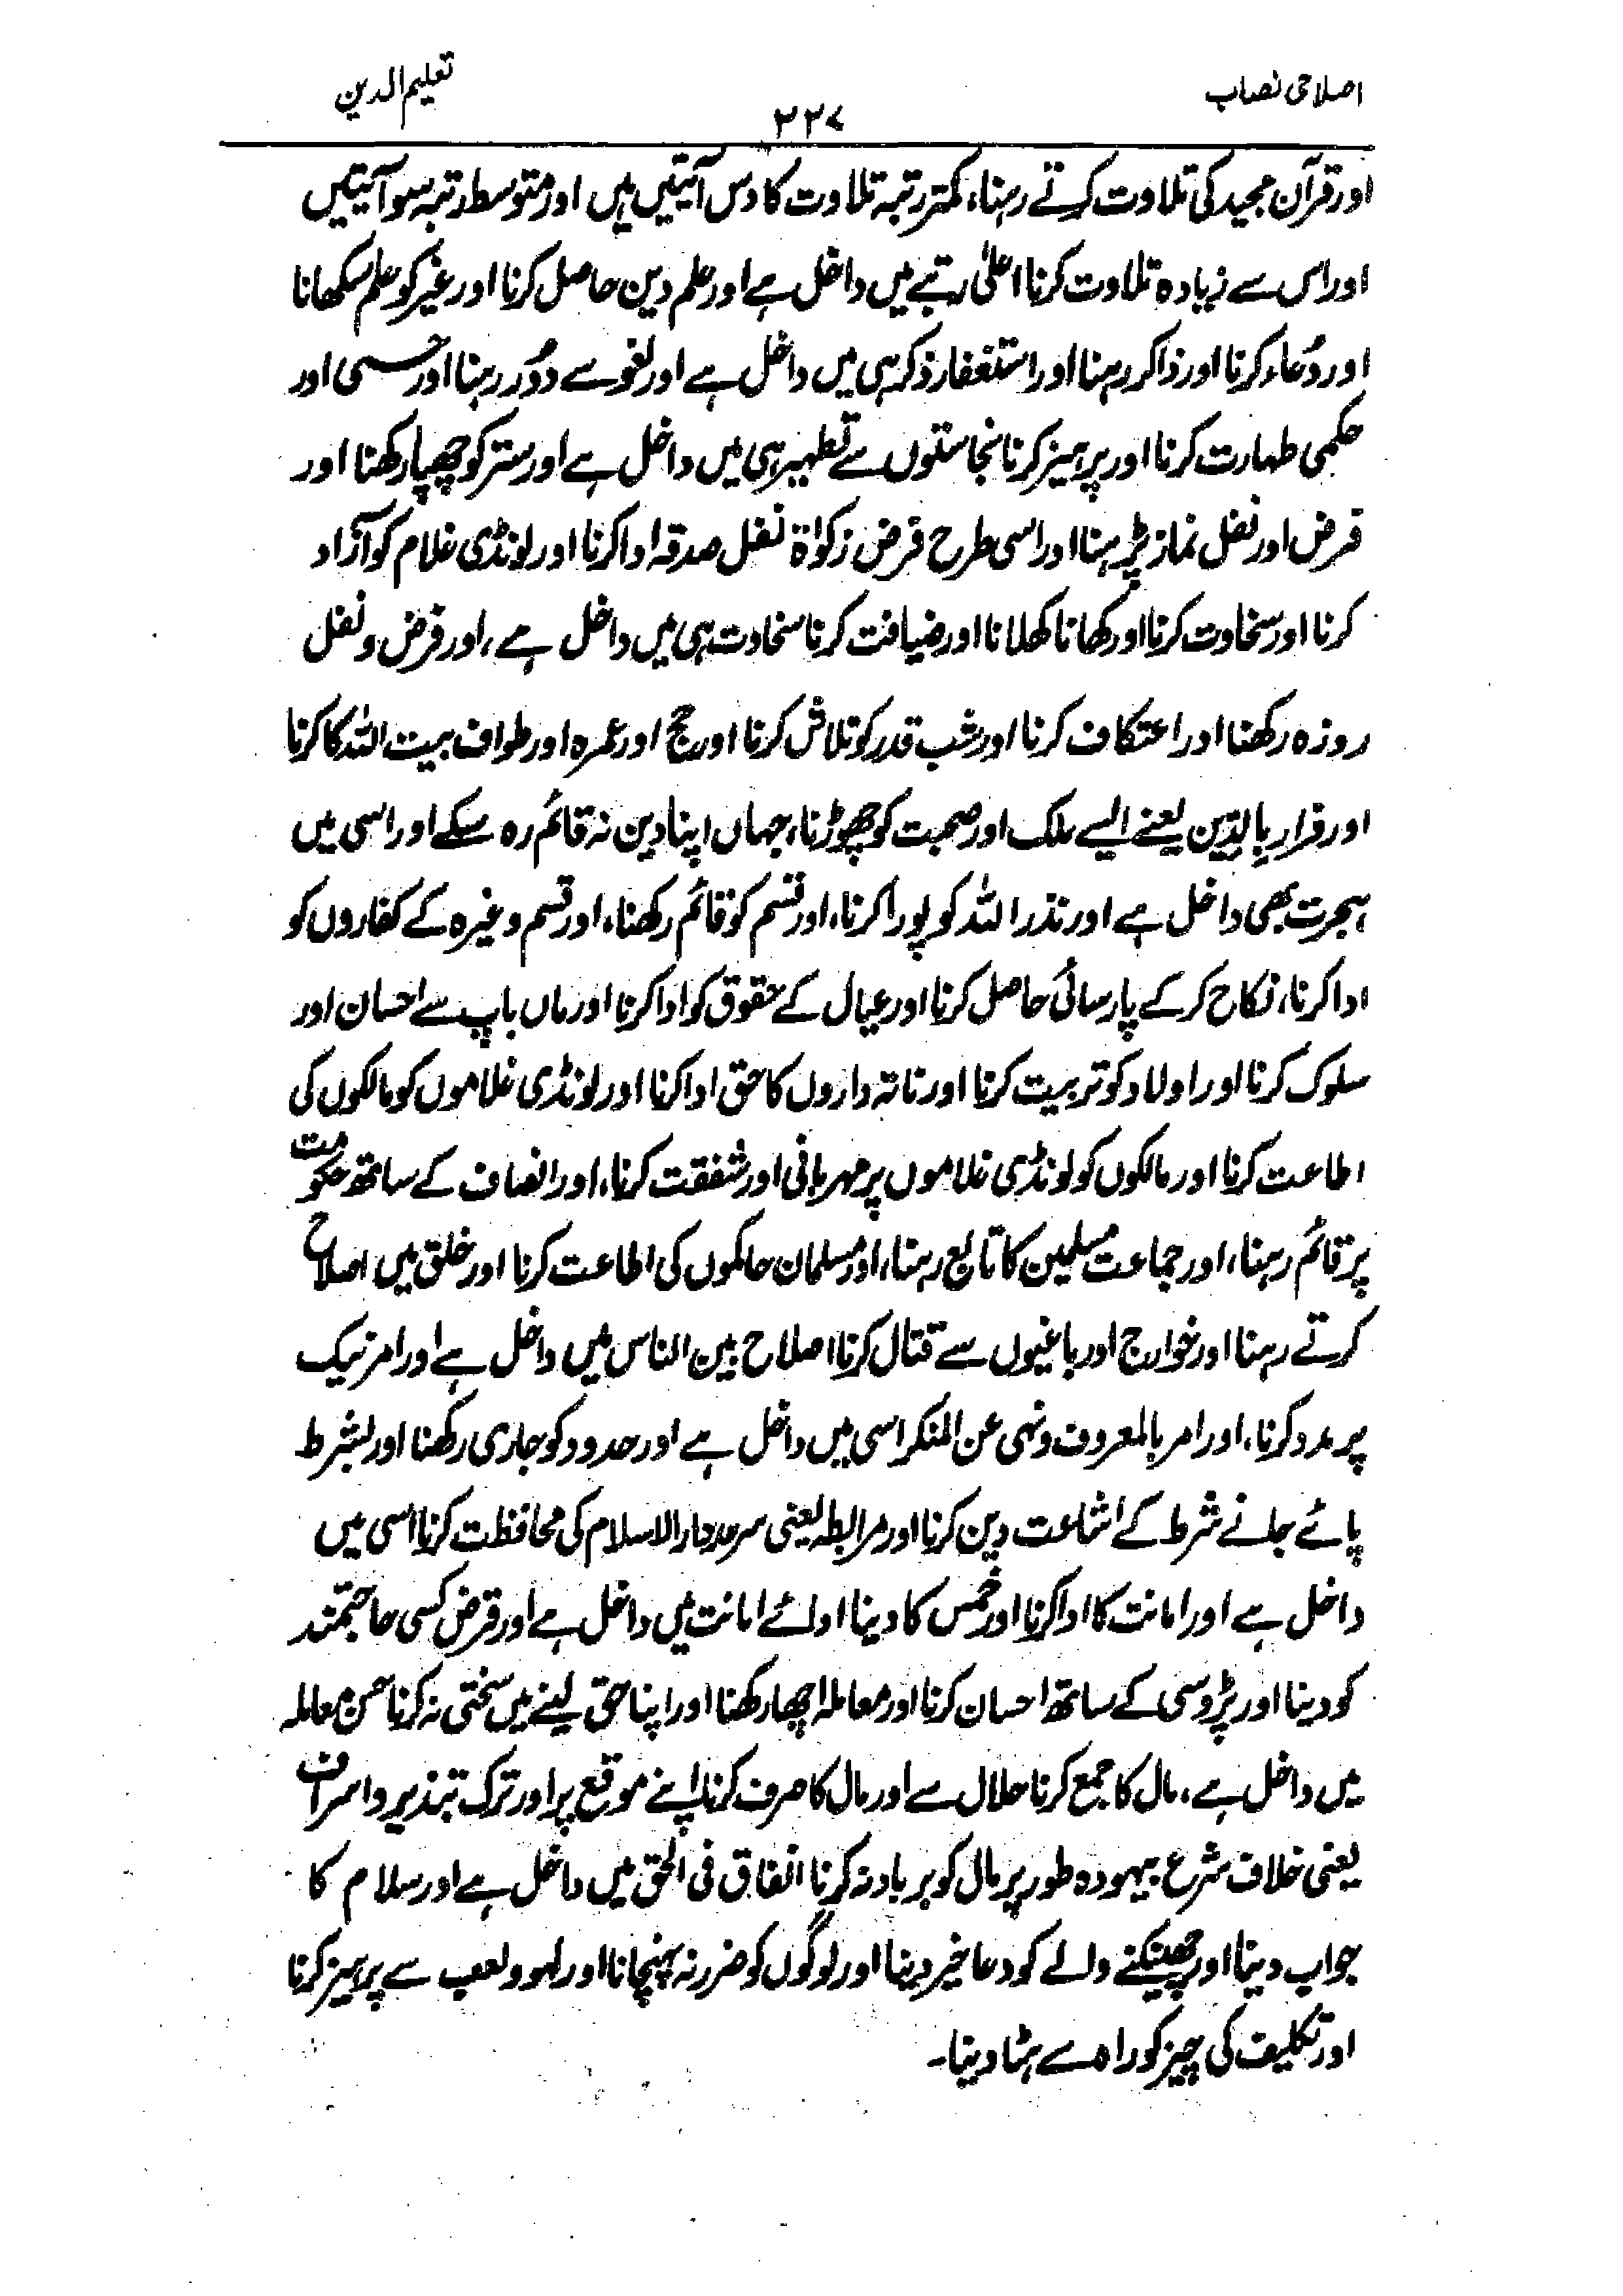 اصلاحی نصاب
۲۲۷
تعلیم الدین
اور قرآن مجید کی تلاوت کرتے رہنا، کمتر رتبہ تلاوت کا دس آیتیں ہیں اور متوسط رتبہ سو آیتیں
اور اس سے زیادہ تلاوت کرنا اعلیٰ رتبے میں داخل ہے اور علم دین حاصل کرنا اور غیر کو علم سکھانا
اور دُعاء کرنا اور ذاکر رہنا اور استغفار ذکر ہی میں داخل ہے اور لغو سے دُور رہنا اور حسی اور
حکمی طہارت کرنا اور پرہیز کرنا نجاستوں سے تطہیر ہی میں داخل ہے اور ستر کو چھپا رکھنا اور
فرض اور نفل نماز پڑہنا اور اسی طرح فرض زکوٰۃ نفل صدقہ ادا کرنا اور لونڈی غلام کو آزاد
کرنا اور سخاوت کرنا اور کھانا کھلانا اور ضیافت کرنا سخاوت ہی میں داخل ہے، اور فرض و نفل
روزہ رکھنا اور اعتکاف کرنا اور شب قدر کو تلاش کرنا اور حج اور عمرہ اور طواف بیت اللہ کا کرنا
اور فرار بِالدِّین یعنے ایسے ملک اور صحبت کو چھوڑنا، جہاں اپنا دین نہ قائم رہ سکے اور اسی میں
ہجرت بھی داخل ہے اور نذر اللہ کو پورا کرنا، اور قسم کو قائم رکھنا، اور قسم وغیرہ کے کفاروں کو
ادا کرنا، نکاح کر کے پارسائی حاصل کرنا اور عیال کے حقوق کو ادا کرنا اور ماں باپ سے احسان اور
سلوک کرنا اور اولاد کو تربیت کرنا اور ناتہ داروں کا حق ادا کرنا اور لونڈی غلاموں کو مالکوں کی
اطاعت کرنا اور مالکوں کو لونڈی غلاموں پر مہربانی اور شفقت کرنا، اور انصاف کے ساتھ حکومت
پر قائم رہنا، اور جماعت مسلمین کا تابع رہنا، اور مسلمان حاکموں کی اطاعت کرنا اور خلق میں اصلاح
کرتے رہنا اور خوارج اور باغیوں سے قتال کرنا اصلاح بین الناس میں داخل ہے اور امر نیک
پر مدد کرنا، اور امر بالمعروف ونہی عن المنکر اسی میں داخل ہے اور حدود کو جاری رکھنا اور بشرط
پائے جانے شرط کے اشاعت دین کرنا اور مرابطہ یعنی سرحد دار الاسلام کی محافظت کرنا اسی میں
داخل ہے اور امانت کا ادا کرنا اور خُمس کا دینا ادائے امانت میں داخل ہے اور قرض کسی حاجتمند
کو دینا اور پڑوسی کے ساتھ احسان کرنا اور معاملہ اچھا رکھنا اور اپنا حق لینے میں سختی نہ کرنا حُسن معاملہ
میں داخل ہے، مال کا جمع کرنا حلال سے اور مال کا صرف کرنا اپنے موقع پر اور ترک تبذیر و اسراف
یعنی خلاف شرع بیہودہ طور پر مال کو برباد نہ کرنا انفاق فی الحق میں داخل ہے اور سلام کا
جواب دینا اور چھینکنے والے کو دعا خیر دینا اور لوگوں کو ضرر نہ پہنچانا اور لہو ولعب سے پرہیز کرنا
اور تکلیف کی چیز کو راہ سے ہٹا دینا۔